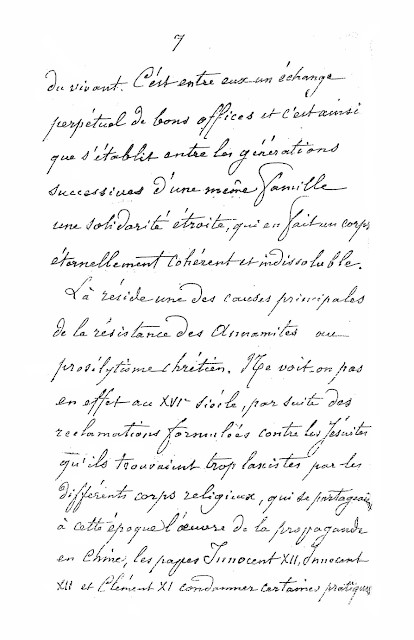 7
du vivant. C'est entre eux un échange
perpétuel de bons offices et c'est ainsi
que s'établit entre les générations
successives d'une même famille
une solidarité étroite, qui en fait un corps
éternellement cohérent et indissoluble.
Là réside une des causes principales
de la résistance des Annamites au
prosilytisme chrétien. Ne voit-on pas
en effet au XVIe siècle, par suite des
réclamations formulées contre les Jésuites
qu'ils trouvaient trop laxistes par les
différents corps religieux, qui se partageaient
à cette époque l'œuvre de la propagande
en Chine, les papes Innocent XII, Innocent
XII et Clément XI condamner certaines pratiques